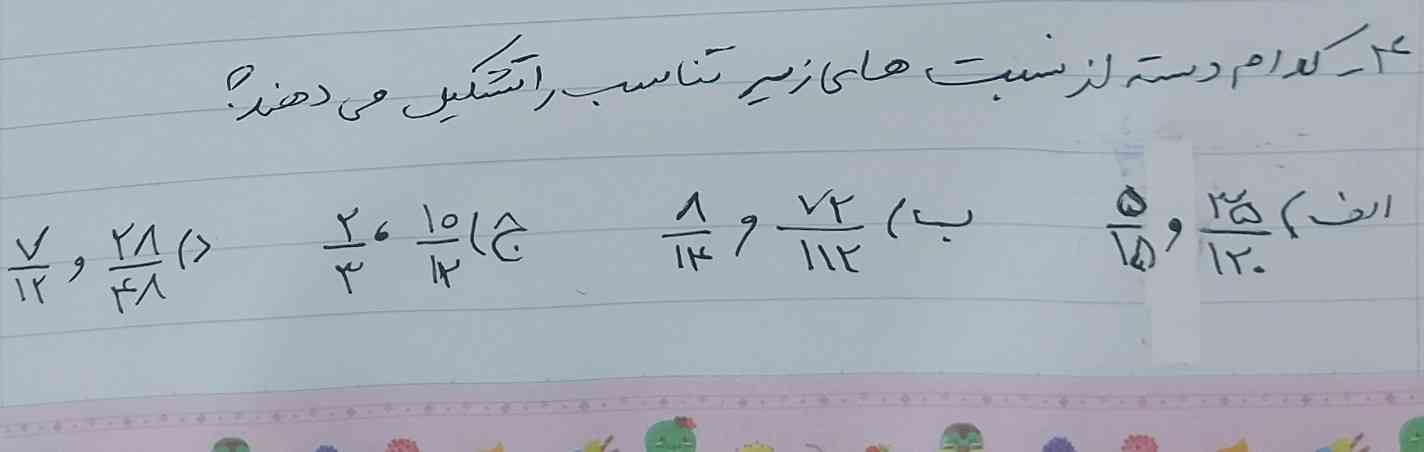 ۴- کدام دسته از نسبت های زیر تناسب را تشکیل می دهند؟
الف) ۳۵/۱۲۰ و ۵/۱۵ ب) ۷۲/۱۱۲ و ۸/۱۴ ج) ۱۵/۱۲ ، ۲/۳ د) ۲۸/۴۸ و ۷/۱۲